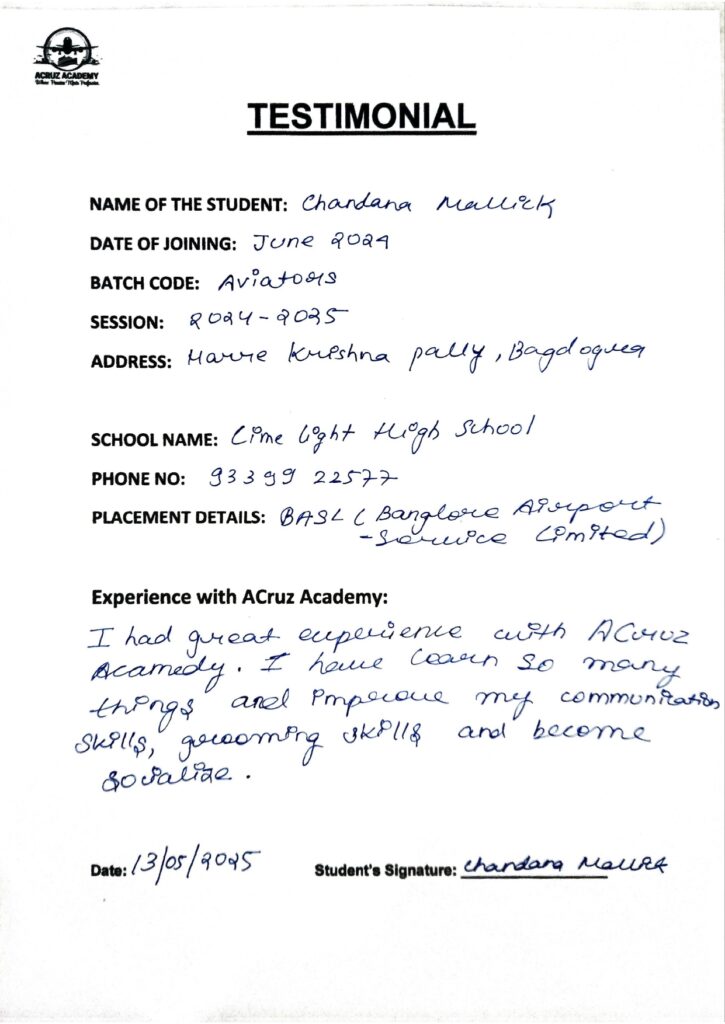 ACRUZ ACADEMY
TESTIMONIAL
NAME OF THE STUDENT: Chandana Mallick
DATE OF JOINING: June 2024
BATCH CODE: Aviators
SESSION: 2024-2025
ADDRESS: Harre Krishna pally, Bagdogra
SCHOOL NAME: Lime light High School
PHONE NO: 93399 22577
PLACEMENT DETAILS: BASL (Banglore Airport
-Service Limited)
Experience with ACruz Academy:
I had great experience with ACruz
Acamedy. I have learn so many
things and improve my communication
skills, grooming skills and become
socialize.
Date: 13/05/2025 Student's Signature: Chandana Mallick